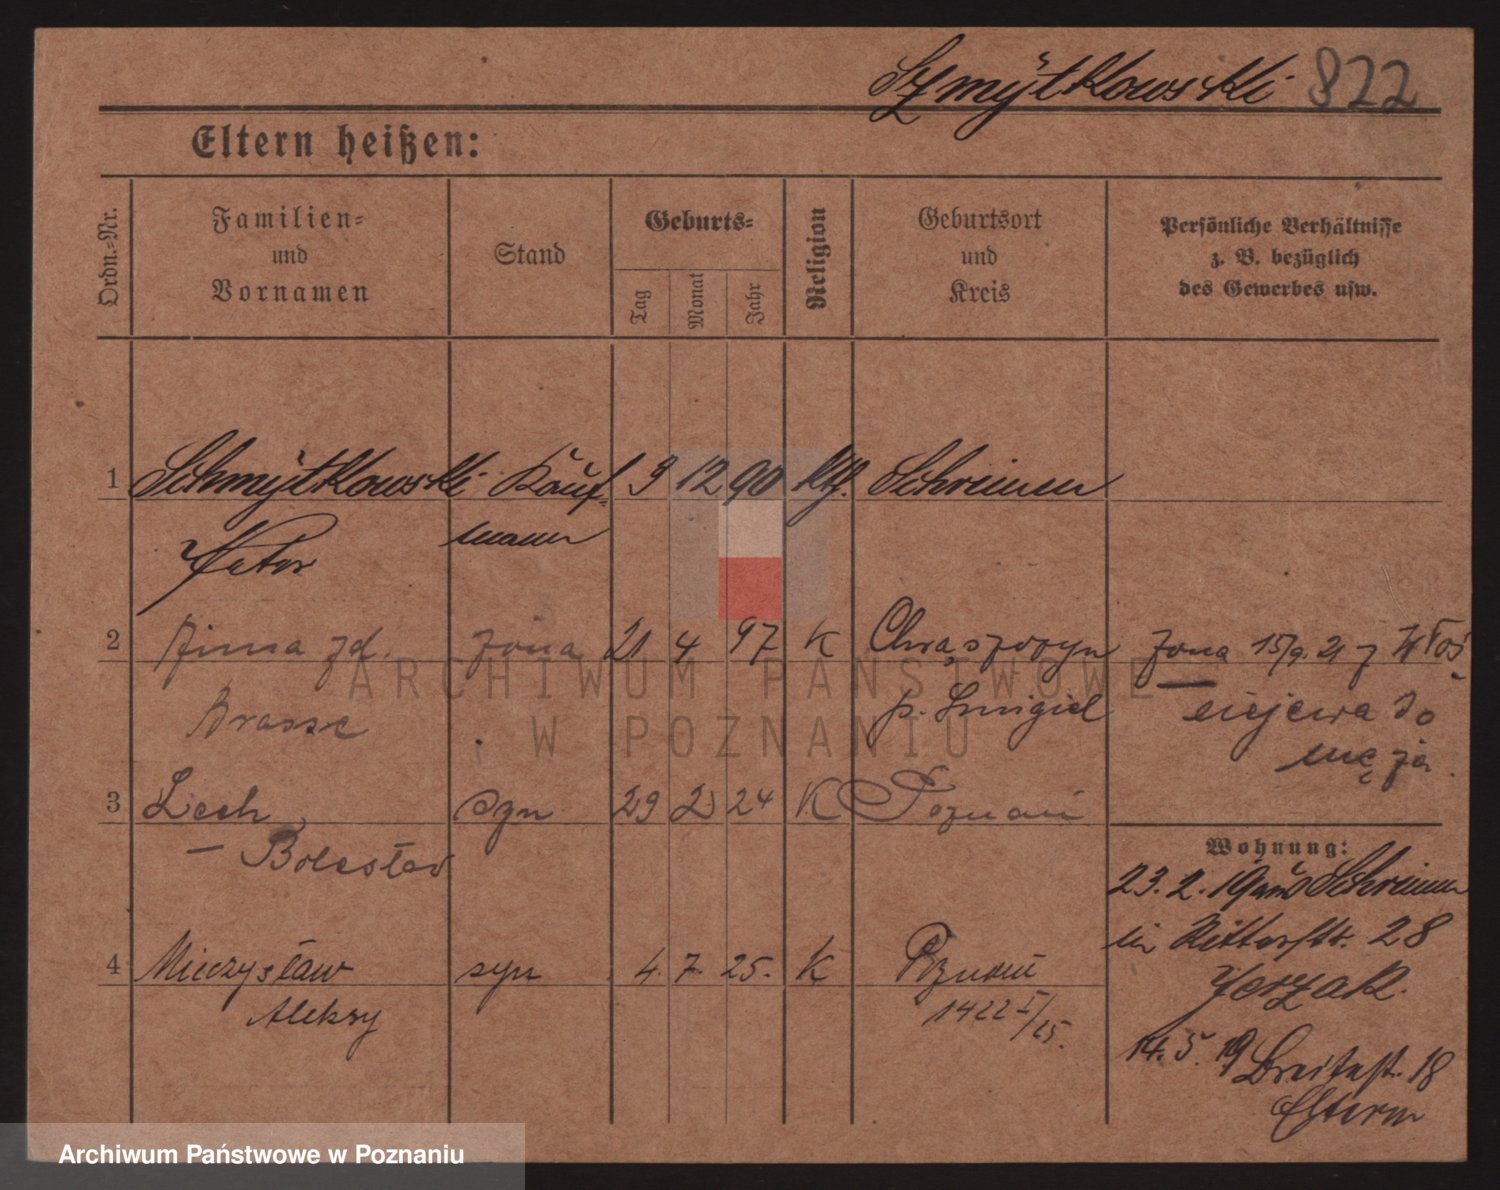 Szmytkowski 822
Eltern heißen:
Ordn.-Nr.
Familien-
und
Vornamen
Stand
Geburts-
Tag
Monat
Jahr
Religion
Geburtsort
und
Kreis
Persönliche Verhältnisse
z. B. bezüglich
des Gewerbes usw.
1 Schmytkowski Kauf- 9 12 90 kth. Schrimm
Peter mann
2 zd. żona 21 4 97 K żona 15/9. 21 z Włoś
Brasse p. Śmigiel ciejewa do
męża.
3 Lech syn 29 2 24 K Poznań
– Bolesław
Wohnung:
23. 2. 19 aus Schrimm
in Ritterstr. 28
4 Mieczysław syn 4. 7. 25. K Poznań
Jerzak.
Aleksy 1422 I/25.
14. 5. 19 Breitestr. 18
Eltern
ARCHIWUM PAŃSTWOWE
W POZNANIU
Archiwum Państwowe w Poznaniu